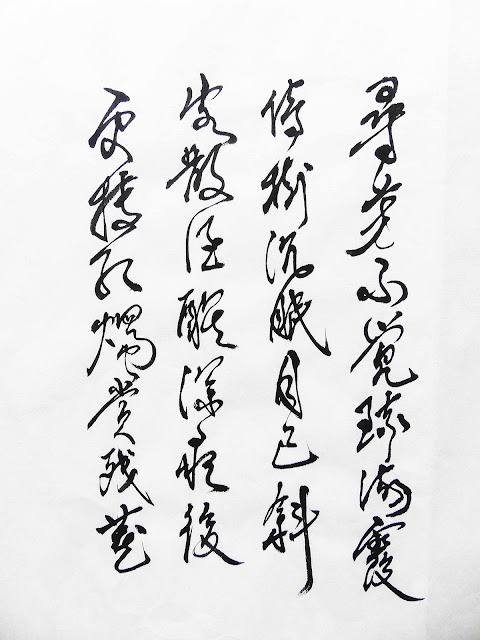 尋芳不覺醉流霞
倚樹沉眠日已斜
客散酒醒深夜後
更持紅燭賞残花